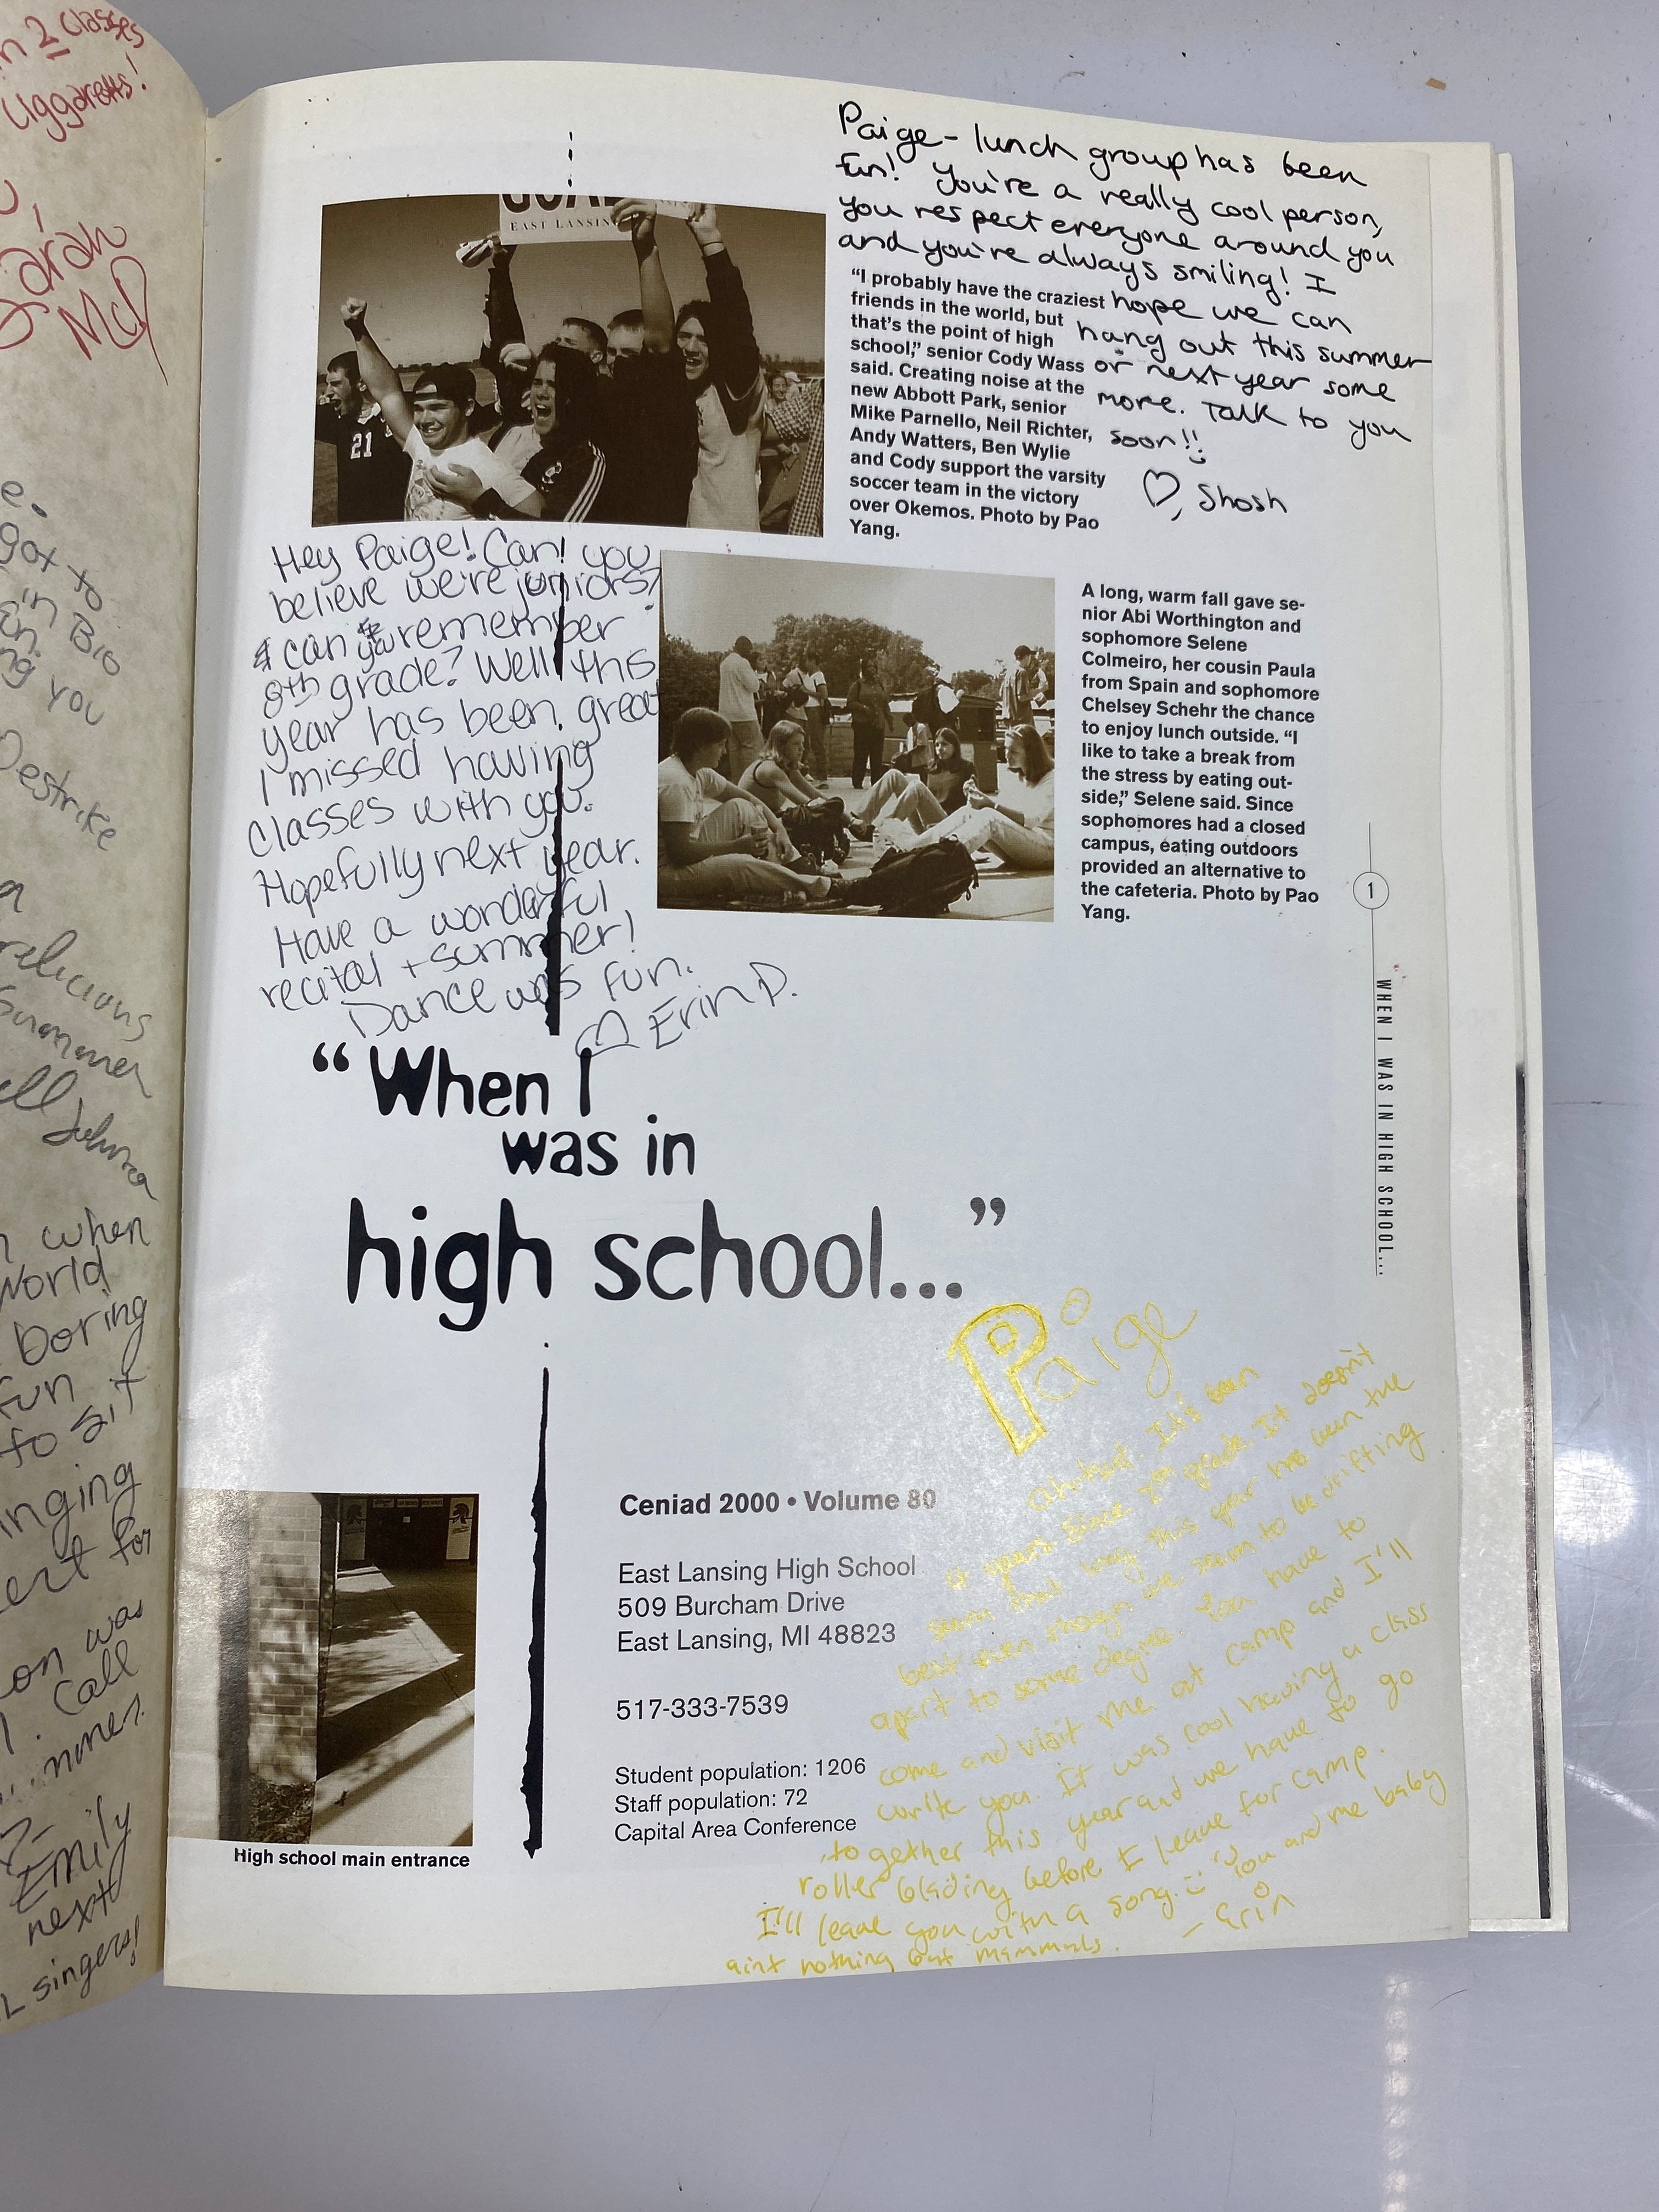 n 2 classes
Uggaretts!
Sarah
McD
e.
got to
in Bio
ng you
Destrike
a
relicious
Summer
ell
when
World
Boring
Fun
to sit
inging
ert for
on was
. Call
Emily
next
singers!
EAST LANSING
21
Paige - lunch group has been
fun! You're a really cool person,
you respect everyone around you
and you're always smiling! I
hope we can
hang out this summer
or next year some
more. Talk to you
soon!!
♡, Shosh
"I probably have the craziest
friends in the world, but
that's the point of high
school," senior Cody Wass
said. Creating noise at the
new Abbott Park, senior
Mike Parnello, Neil Richter,
Andy Watters, Ben Wylie
and Cody support the varsity
soccer team in the victory
over Okemos. Photo by Pao
Yang.
Hey Paige! Can! you
believe we're juniors?
can you remember
8th grade? Well this
year has been great
I missed having
classes with you.
Hopefully next year.
Have a wonderful
recital + summer!
Dance was fun.
♡ Erin D.
A long, warm fall gave se-
nior Abi Worthington and
sophomore Selene
Colmeiro, her cousin Paula
from Spain and sophomore
Chelsey Schehr the chance
to enjoy lunch outside. "I
like to take a break from
the stress by eating out-
side," Selene said. Since
sophomores had a closed
campus, eating outdoors
provided an alternative to
the cafeteria. Photo by Pao
Yang.
1
WHEN I WAS IN HIGH SCHOOL...
"When I
was in
high school..."
Ceniad 2000 • Volume 80
East Lansing High School
509 Burcham Drive
East Lansing, MI 48823
517-333-7539
Student population: 1206
Staff population: 72
Capital Area Conference
High school main entrance
Paige
It's been
years since grade. It doesn't
seem that long this year has been the
best even though we seem to be drifting
apart to some degree. You have to
come and visit me at camp and I'll
write you. It was cool having a class
together this year and we have to go
roller blading before I leave for camp.
I'll leave you with a song. :) "You and me baby
aint nothing but mammals.
- Erin